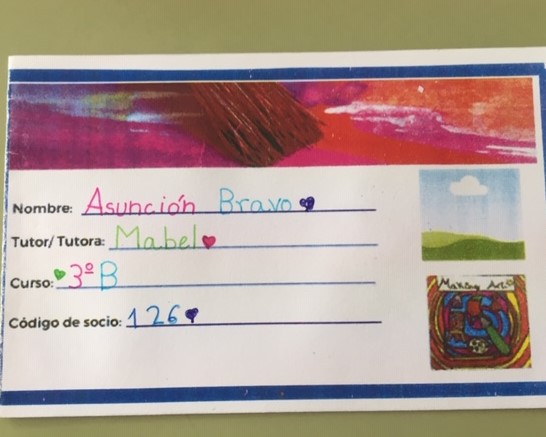 Nombre: Asunción Bravo
Tutor/Tutora: Mabel
Curso: 3º B
Código de socio: 126
Making Art